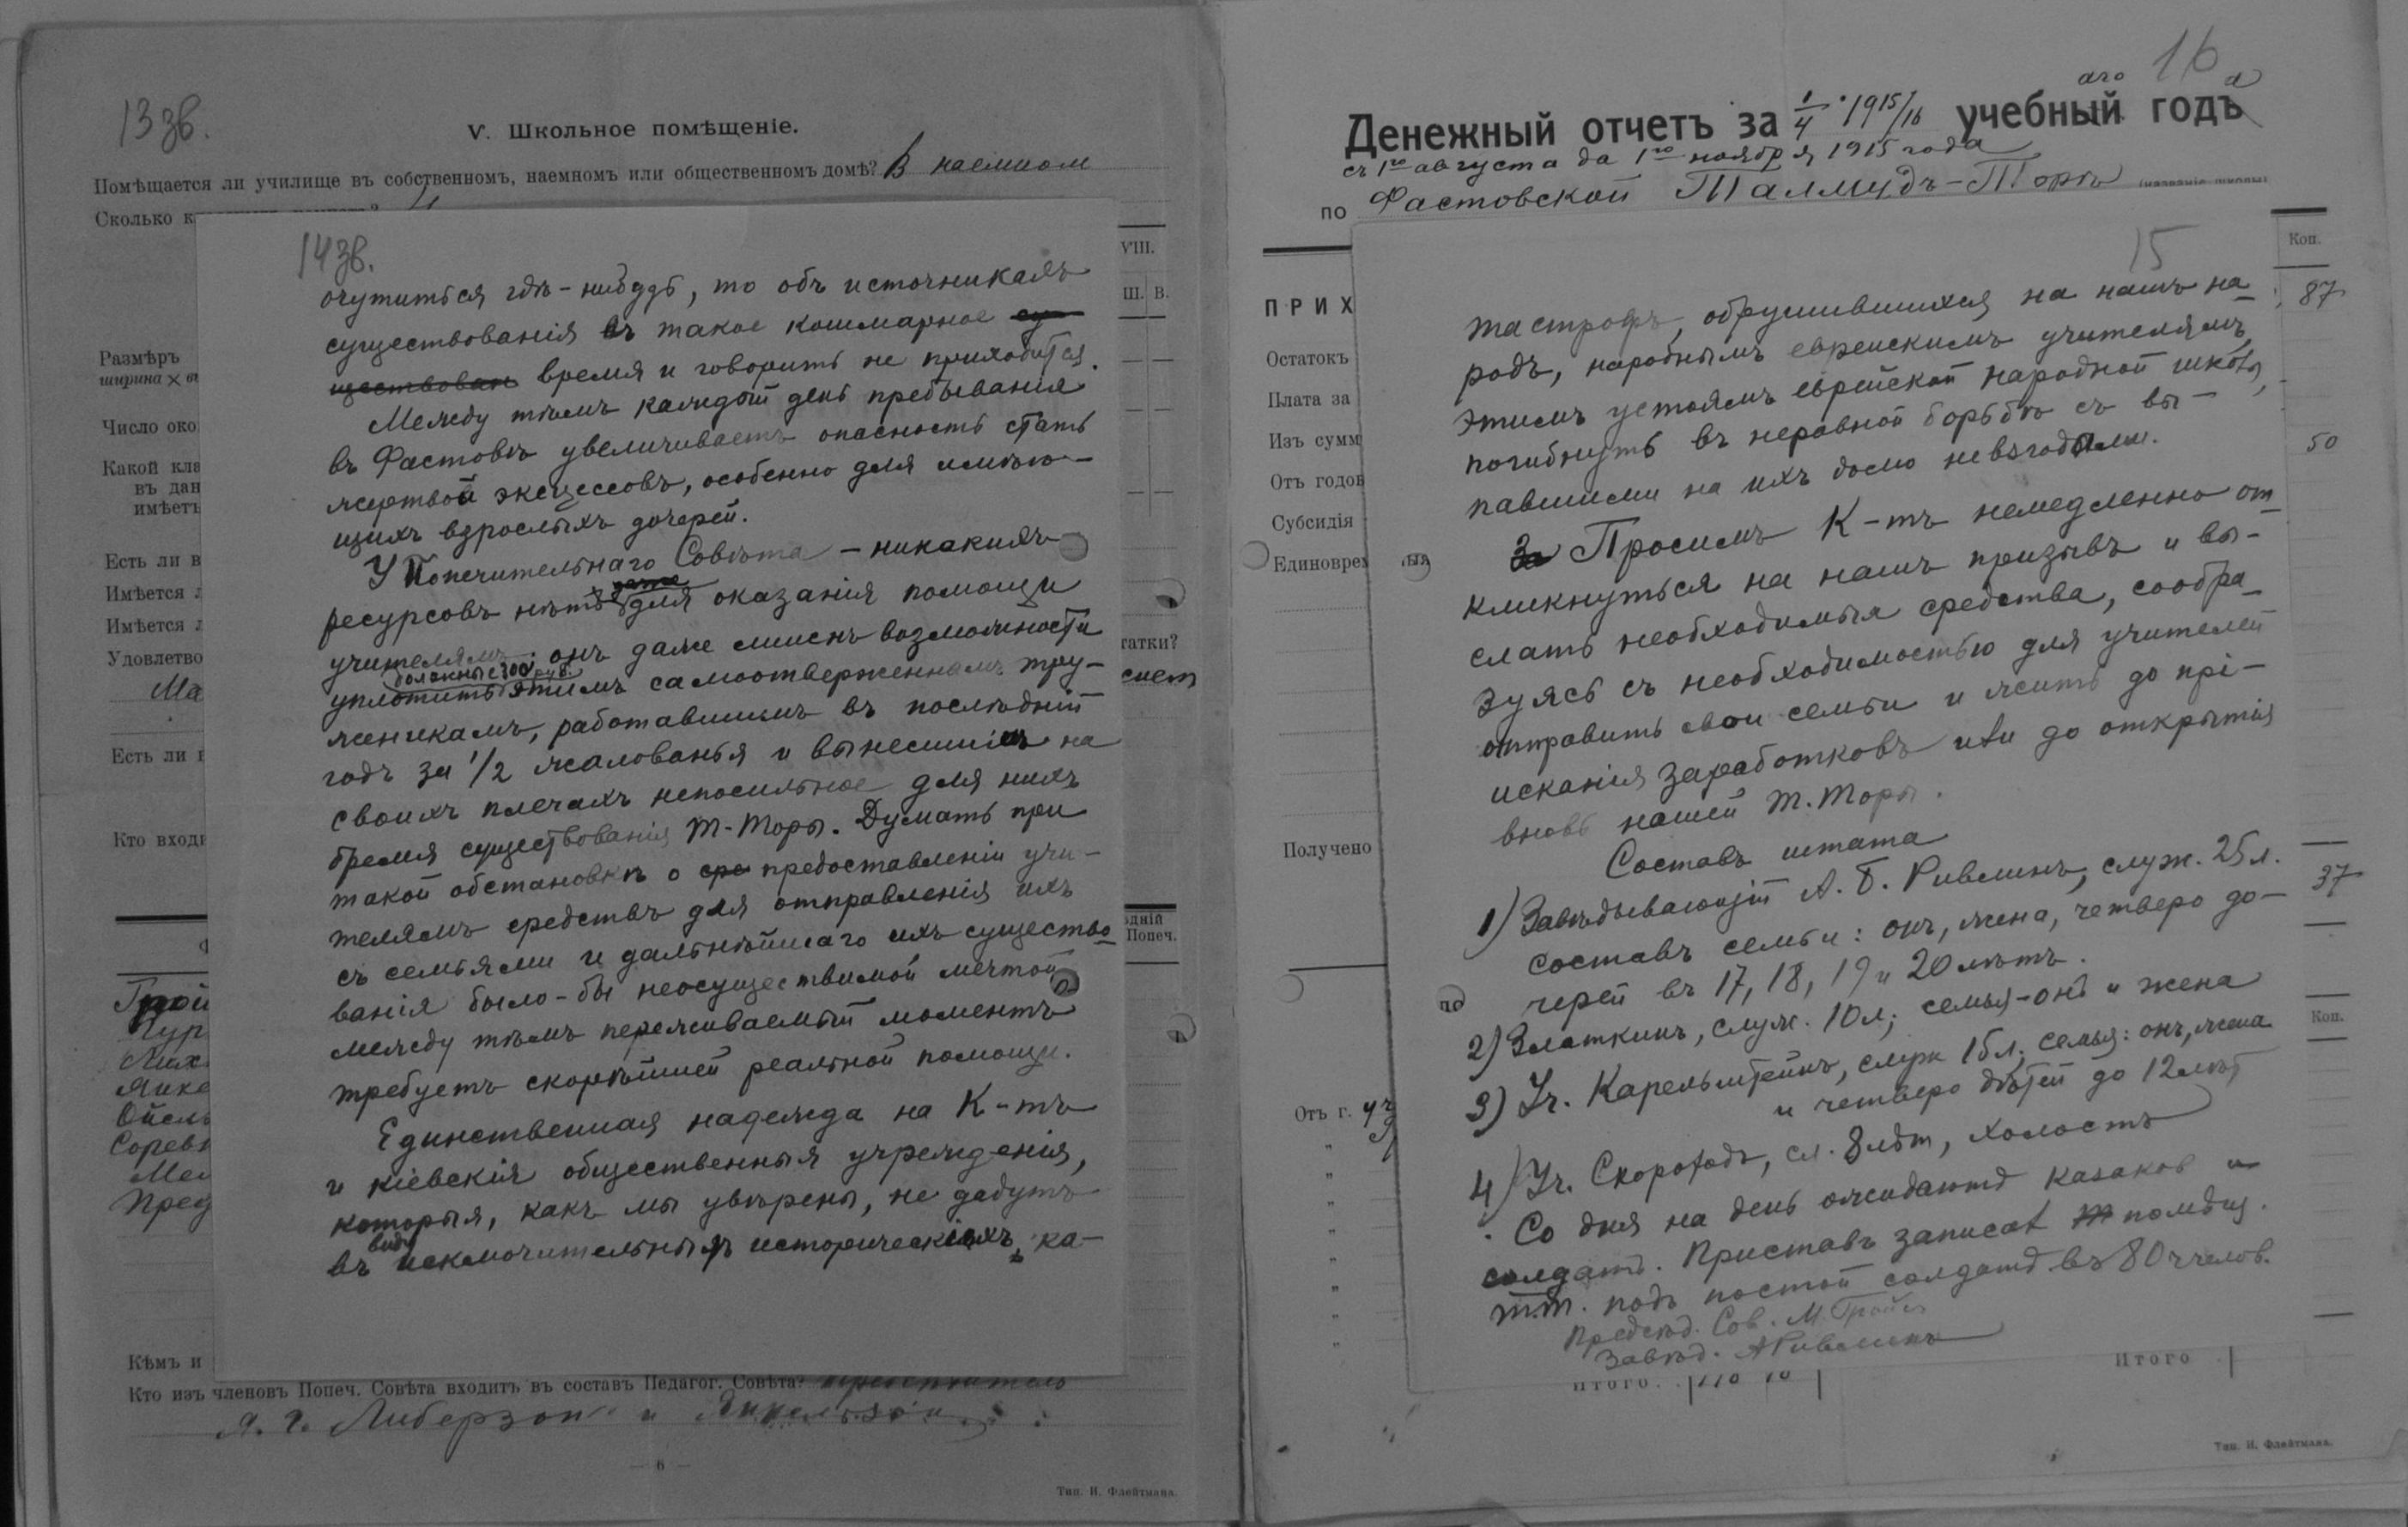 13 зв.
V. Школьное помѣщеніе.
Помѣщается ли училище въ собственномъ, наемномъ или общественномъ домѣ? В наемном
Сколько к
Размѣръ
ширина ×
Число око
Какой кла
въ дан
имѣетъ
Есть ли в
Имѣется л
Имѣется л
Удовлетво
Ма
Есть ли в
Кто входи
VIII.
III. В.
татки?
Попеч.
14 зв.
очутиться гдѣ-нибудь, то объ источникахъ
существованія въ такое кошмарное су
ществован время и говорить не приходится.
Между тѣмъ каждый день пребыванія
въ Фастовѣ увеличиваетъ опасность стать
жертвой эксцессовъ, особенно для имѣю-
щихъ взрослыхъ дочерей.
У Попечительнаго Совѣта – никакихъ
ресурсовъ нѣтъ для оказанія помощи
учителямъ: онъ даже лишенъ возможности
должные 300 руб.
уплотить этимъ самоотверженнымъ тру-
женикамъ, работавшимъ въ послѣдній
годъ за 1/2 жалованья и вынесшимъ на
своихъ плечахъ непосильное для нихъ
бремя существованія Т-Торы. Думать при
такой обстановкѣ о сре предоставленіи учи-
телямъ средствъ для отправленія ихъ
съ семьями и дальнѣйшаго ихъ существо
ванія было-бы неосуществимой мечтой
между тѣмъ переживаемый моментъ
требуетъ скорѣйшей реальной помощи.
Единственная надежда на К-тъ
и кіевскія общественныя учрежденія,
которыя, какъ мы увѣрены, не дадутъ
виду
въ исключительныхъ историческихъ ка-
Грой
Янке
Мел
Пред
Кѣмъ и
Кто изъ членовъ Попеч. Совѣта входитъ въ составъ Педагог. Совѣта?
Либерзон и
— 6 —
Тип. И. Флейтмана.
16
Денежный отчетъ за 1/4 1915/16 учебный годъ
аго а
съ 1го августа до 1го ноября 1915 года
по Фастовской Талмудъ-Торѣ (названіе школы)
Коп.
87
50
37
Коп.
ПРИХ
Остатокъ
Плата за
Изъ сумм
Отъ годов
Субсидія
Единоврем
Получено
Отъ г.
15
тастрофъ, обрушившихся на нашъ на
родъ, народнымъ еврейскимъ учителямъ,
этимъ устоямъ еврейской народной школы,
погибнуть въ неравной борьбѣ съ вы-
павшими на ихъ долю невзгодами.
За Просимъ К-тъ немедленно от
кликнуться на нашъ призывъ и вы-
слать необходимыя средства, сообра
зуясь съ необходимостью для учителей
отправить свои семьи и жить до прі-
исканія заработковъ или до открытія
вновь нашей Т.Торы.
Составъ штата
1) Завѣдывающій А. Б. Ривлинъ, служ. 25 л.
составъ семьи: онъ, жена, четверо до-
черей въ 17, 18, 19 и 20 лѣтъ.
2) Златкинъ, служ. 10 л; семья-онъ и жена
3) Уч. Карельштейнъ, служ 15 л; семья: онъ, жена
и четверо дѣтей до 12 лѣт
4) Уч. Скороходъ, сл. 8 лѣт, холостъ
Со дня на день ожидаютъ казаков и
солдатъ. Приставъ записал помѣщ.
Т.Т. подъ постой солдатъ въ 80 человѣк.
Предсѣд. Сов. М. Гройс
Завѣд. АРивлинъ
Итого
Итого
Тип. И. Флейтмана.